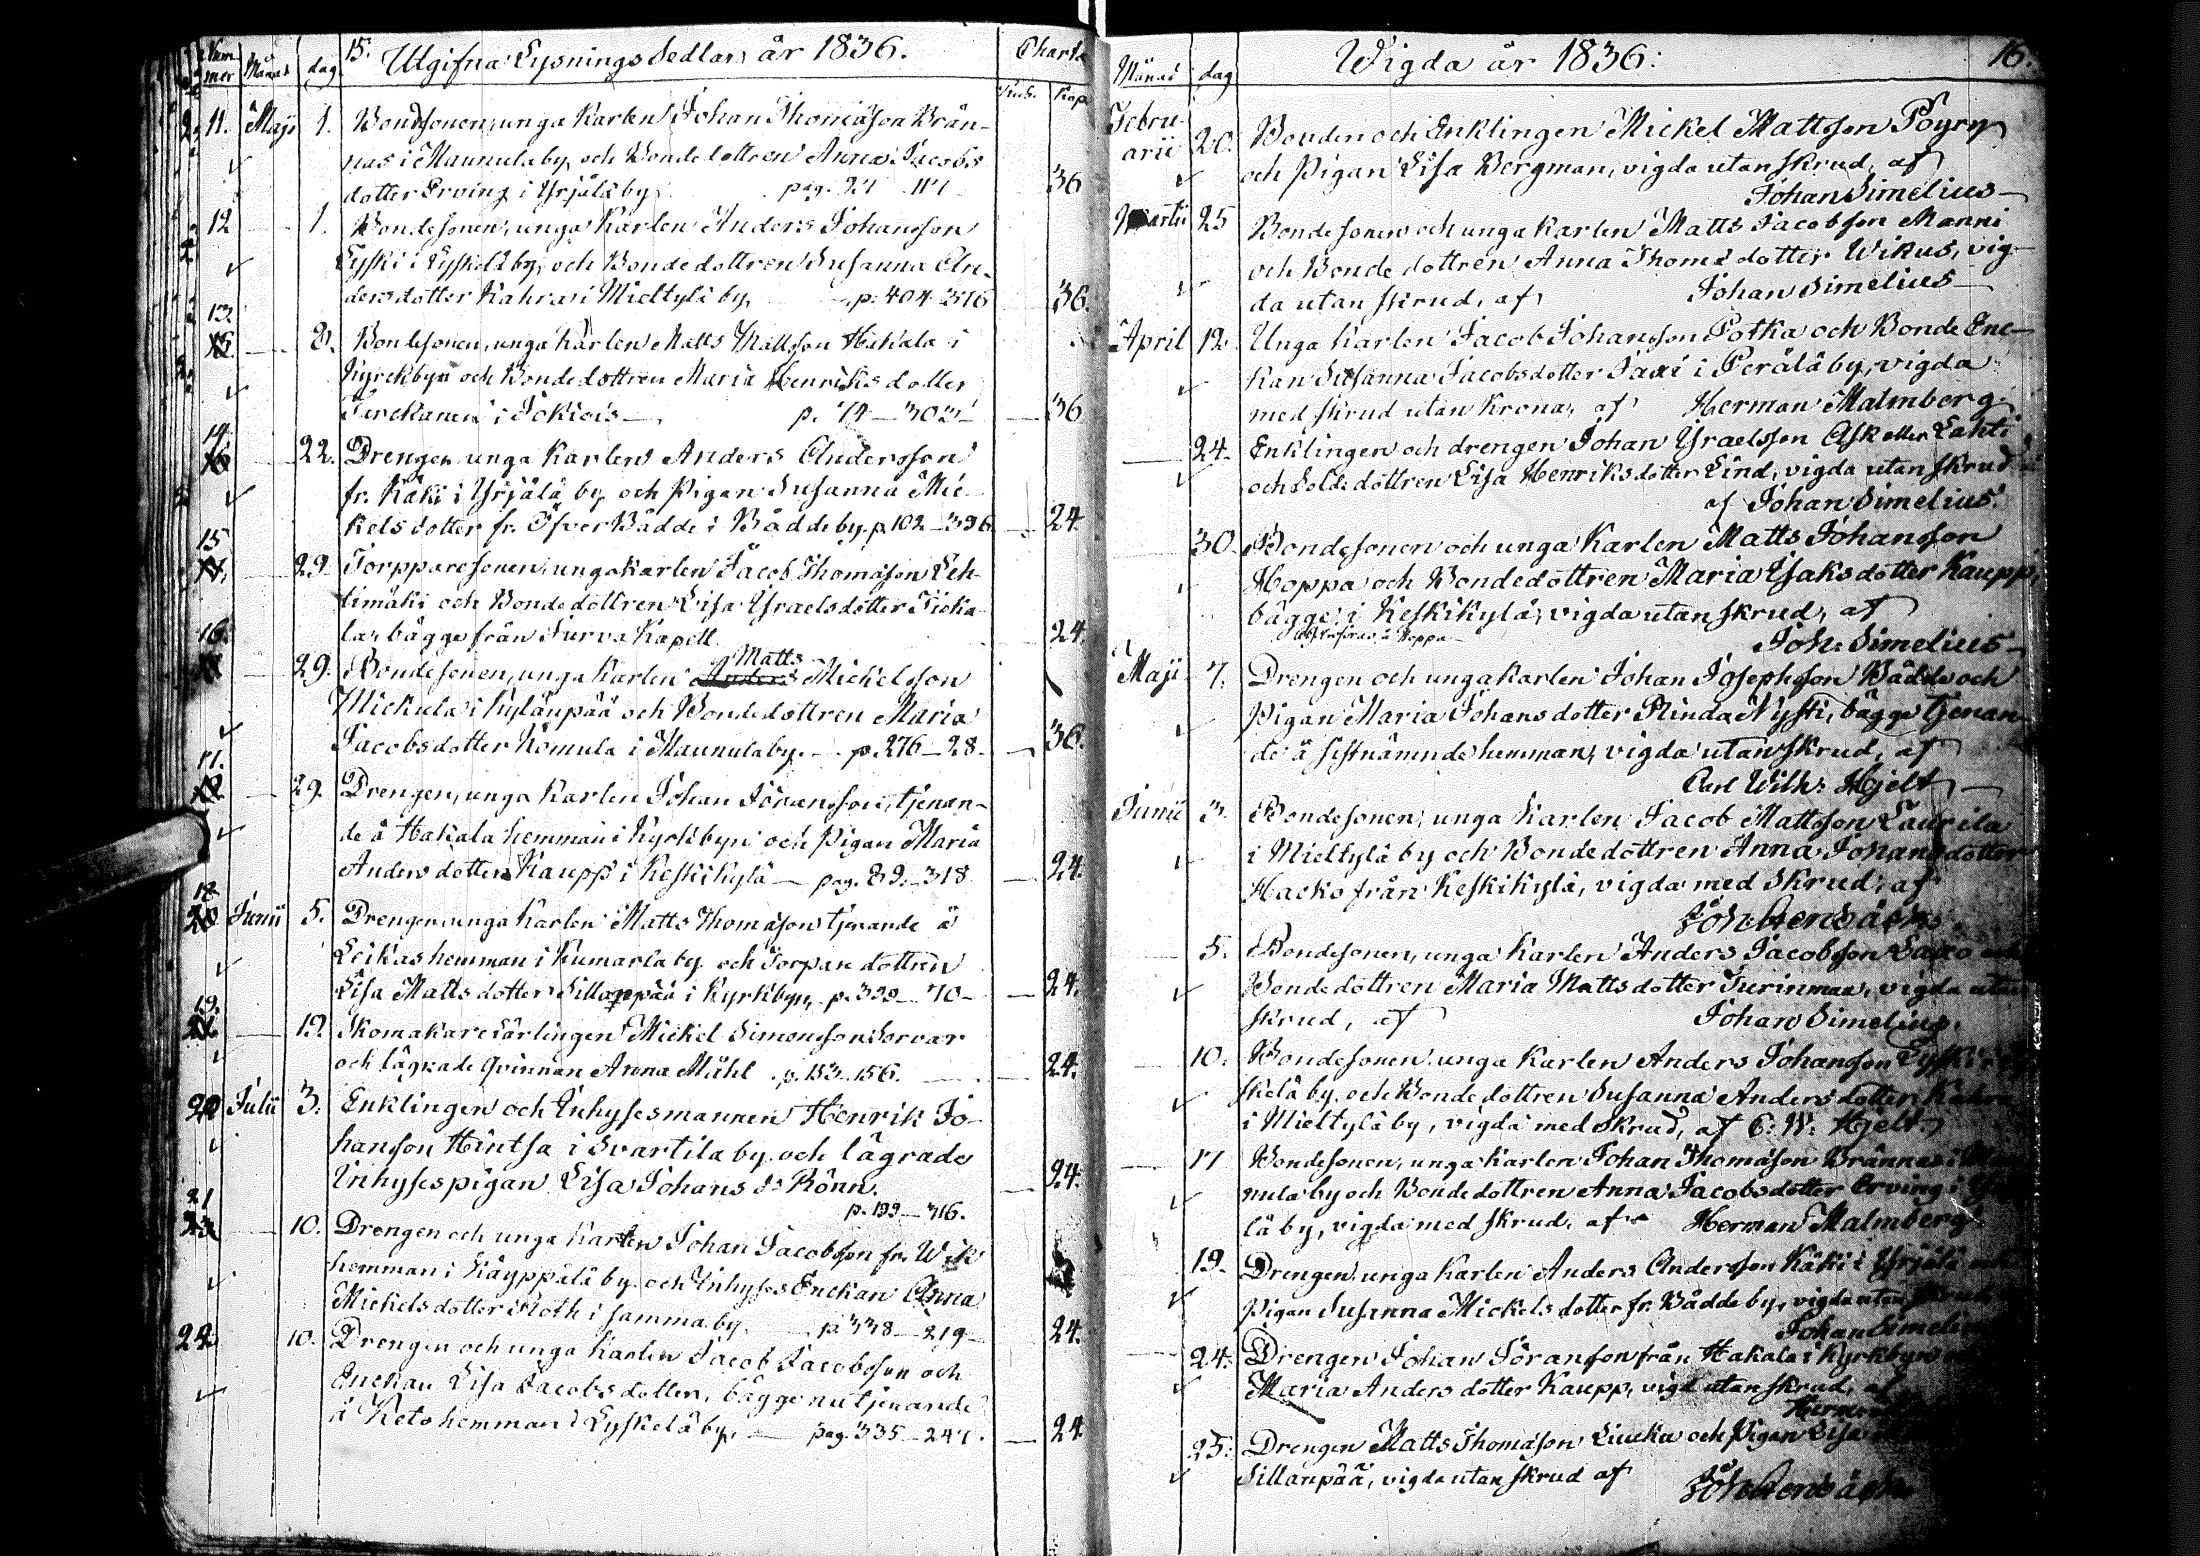 Num mer Månad dag 15. Utgifna Lysnings Sedlar år 1836. Charta
Rub. Kop.
11. Maji 1. Bondesonen, unga Karlen Johan Thomasson Brän-
nas i Maunula by, och Bondedottren Anna Jacobs
dotter Erving i Yrjälä by pag. 36
12 1. Bondesonen, unga Karlen Anders Johansson
Lyski i Lyskelä by, och Bondedottren Susanna An-
dersdotter Kahra i Mieltylä by, p. 404 376 36.
13. 8. Bondesonen, unga Karlen Matts Mattsson Hakala i
Kyrckbyn och Bondedottren Maria Henriksdotter
i Jokiois p. 74 — 303 36
14 22. Drengen unga Karlen Anders Andersson
fr. Käki i Yrjälä by och Pigan Susanna Mic
kelsdotter fr. ÖfverBådde i Bådde by. p. 102 — 396 24
15 29 Torpparesonen, unga karlen Jacob Thomasson Leh-
timäki och Bondedottren Lisa Israelsdotter
la, bägge från Jurva Kapell 24.
16. 29. Bondesonen, unga Karlen Anders Matts Mickelsson
Mickula i Kylänpää och Bondedottren Maria
Jacobsdotter Komula i Maunula by. — p. 276 — 28 — 36.
17. 29. Drengen, unga Karlen Johan Göransson, tjenan-
de å Hakala hemman i Kyrkbyn och Pigan Maria
Andersdotter Kaupp i Keskikylä — pag. 89. — 318 24.
18 Junii 5. Drengen unga Karlen Matts Thomasson tjenande å
Leikas hemman i Kumarla by och Torpare dottren
Lisa Mattsdotter Sillanpää i Kyrkbyn, p. 399 — 70 — 24.
19. 12. Skomakare Lärlingen Mickel Simonsson Sorvar
och lägrade Qvinnan Anna Mühl p. 153. 156. 24.
20 Julii 3. Enklingen och Inhysesmannen Henrik Jo-
hansson Hintsa i Svartila by och lägrade
Inhysespigan Lisa Johans dr Rönn. 24.
p. 199 — 316.
21 10. Drengen och unga Karlen Johan Jacobsson fr. Wik
hemman i Käyppälä by och Inhyses Enckan Anna
Mickelsdotter Roth i samma by. — p. 338 — 219 — 24.
22 10. Drengen och unga Karlen Jacob Jacobsson och
Enckan Lisa Jacobsdotter, bägge nu tjenande
å Keto hemman i Lyskelä by, — pag. 335 — 247. 24
Månad dag Wigda år 1836: 16.
Febru-
arii 20. Bonden och Enklingen Mickel Mattsson Pöyry
och Pigan Lisa Bergman, vigda utan skrud, af
Johan Simelius —
Martii 25 Bondesonen och unga Karlen Matts Jacobsson Manni
och Bonde dottren Anna Thomædotter Wikus, vig-
da utan skrud, af Johan Simelius —
April 12. Unga Karlen Jacob Johansson Potka och Bonde Enc-
kan Susanna Jacobsdotter Saxi i Perälä by, vigda
med skrud utan Krona, af Herman Malmberg.
24. Enklingen och drengen Johan Ysraelsson Ask eller Lahti
och Soldedottren Lisa Henriksdotter Lind, vigda utan skrud
af Johan Simelius.
30. Bondesonen och unga Karlen Matts Johansson
Hoppa och Bondedottren Maria Isaksdotter Kauppi,
bägge i Keskikylä, vigda utan skrud, af
Joh. Simelius —
Maji 7. Drengen och unga Karlen Johan Josephsson Bådde och
Pigan Maria Johansdotter Plinda Nysti, bägge tjenan-
de å sistnämnde hemman, vigda utan skrud, af
Carl Wilh: Hjelt —
Junii 3. Bondesonen, unga Karlen Jacob Mattsson Laurila
i Mieltylä by och Bondedottren Anna Johansdotter
Hacko från Keskikylä, vigda med skrud, af
5. Bondesonen, unga Karlen Anders Jacobsson Saxo och
Bondedottren Maria Mattsdotter Turinmaa, vigda utan
skrud, af Johan Simelius.
10. Bondesonen unga Karlen Anders Johansson Lyski i Ly
skelä by, och Bondedottren Susanna Andersdotter Kahra
i Mieltylä by, vigda med skrud, af C: W: Hjelt
17 Bondesonen, unga Karlen Johan Thomasson Brännas i Mau
nula by och Bondedottren Anna Jacobsdotter Erving i Yrjä
lä by, vigda med skrud, af Herman Malmberg
19. Drengen unga Karlen Anders Andersson Käki i Yrjälä och
Pigan Susanna Mickelsdotter fr. Bådde by, vigda utan skrud
Johan Simelius
24. Drengen Johan Göransson från Hakala i Kyrkbyn och
Maria Andersdotter Kaupp, vigd utan skrud, af
Herman
25. Drengen Matts Thomasson och Pigan Lisa
Sillanpää, vigda utan skrud af